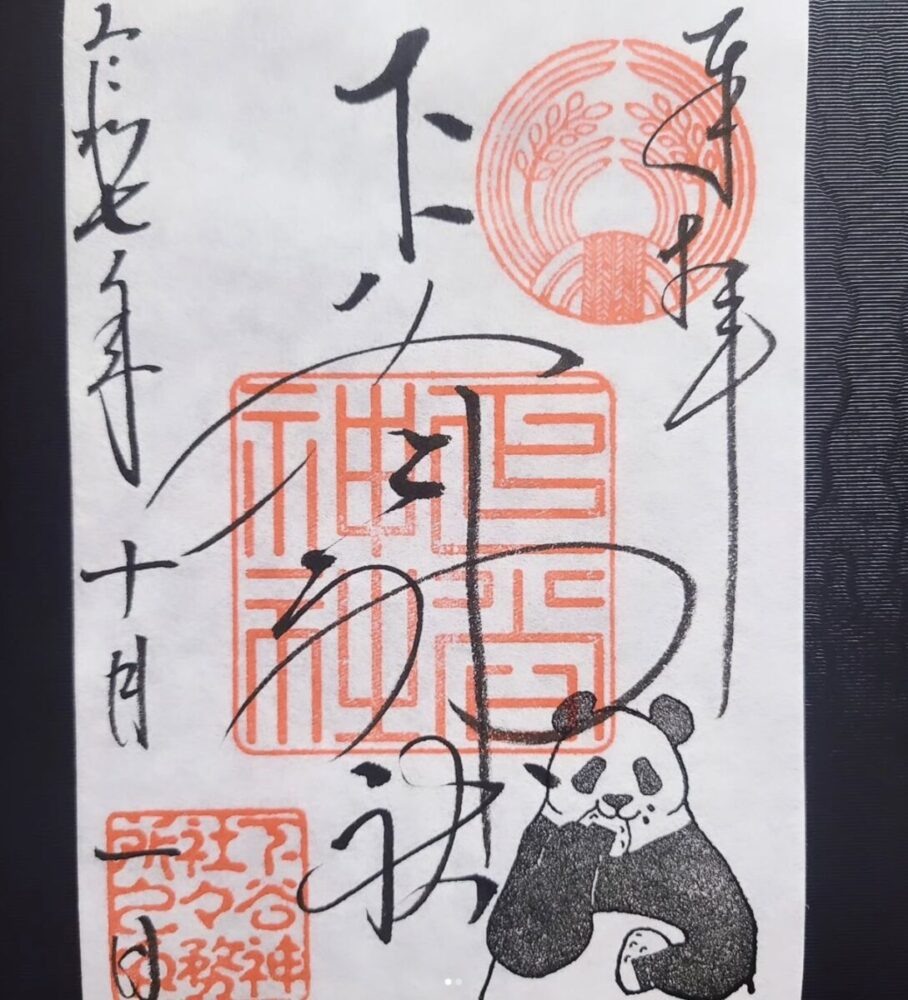 奉拝
下谷神社
下谷
神社
令和七年十月一日
下谷神
社々務
所之印